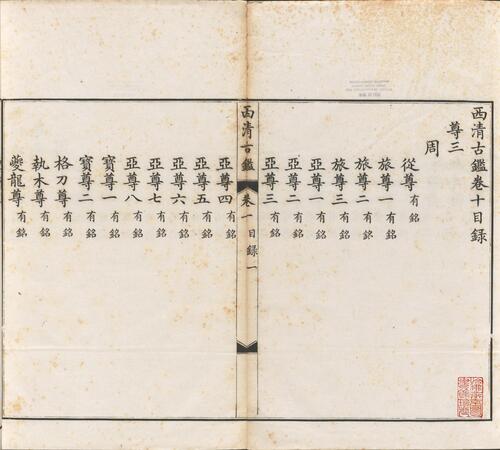 西清古鑑卷十目録
尊三
周
從尊有銘
旅尊一有銘
旅尊二有銘
旅尊三有銘
亞尊一有銘
亞尊二有銘
亞尊三有銘
西清古鑑 卷一目録 一
亞尊四有銘
亞尊五有銘
亞尊六有銘
亞尊七有銘
亞尊八有銘
寶尊一有銘
寶尊二有銘
格刀尊有銘
執木尊有銘
夔龍尊有銘